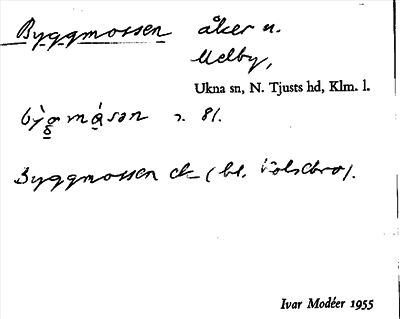 Byggmossen åker n.
Melby,
Ukna sn, N. Tjusts hd, Klm. l.
byg måsan 2. 81.
Byggmossen ek (bl.
Ivar Modéer 1955